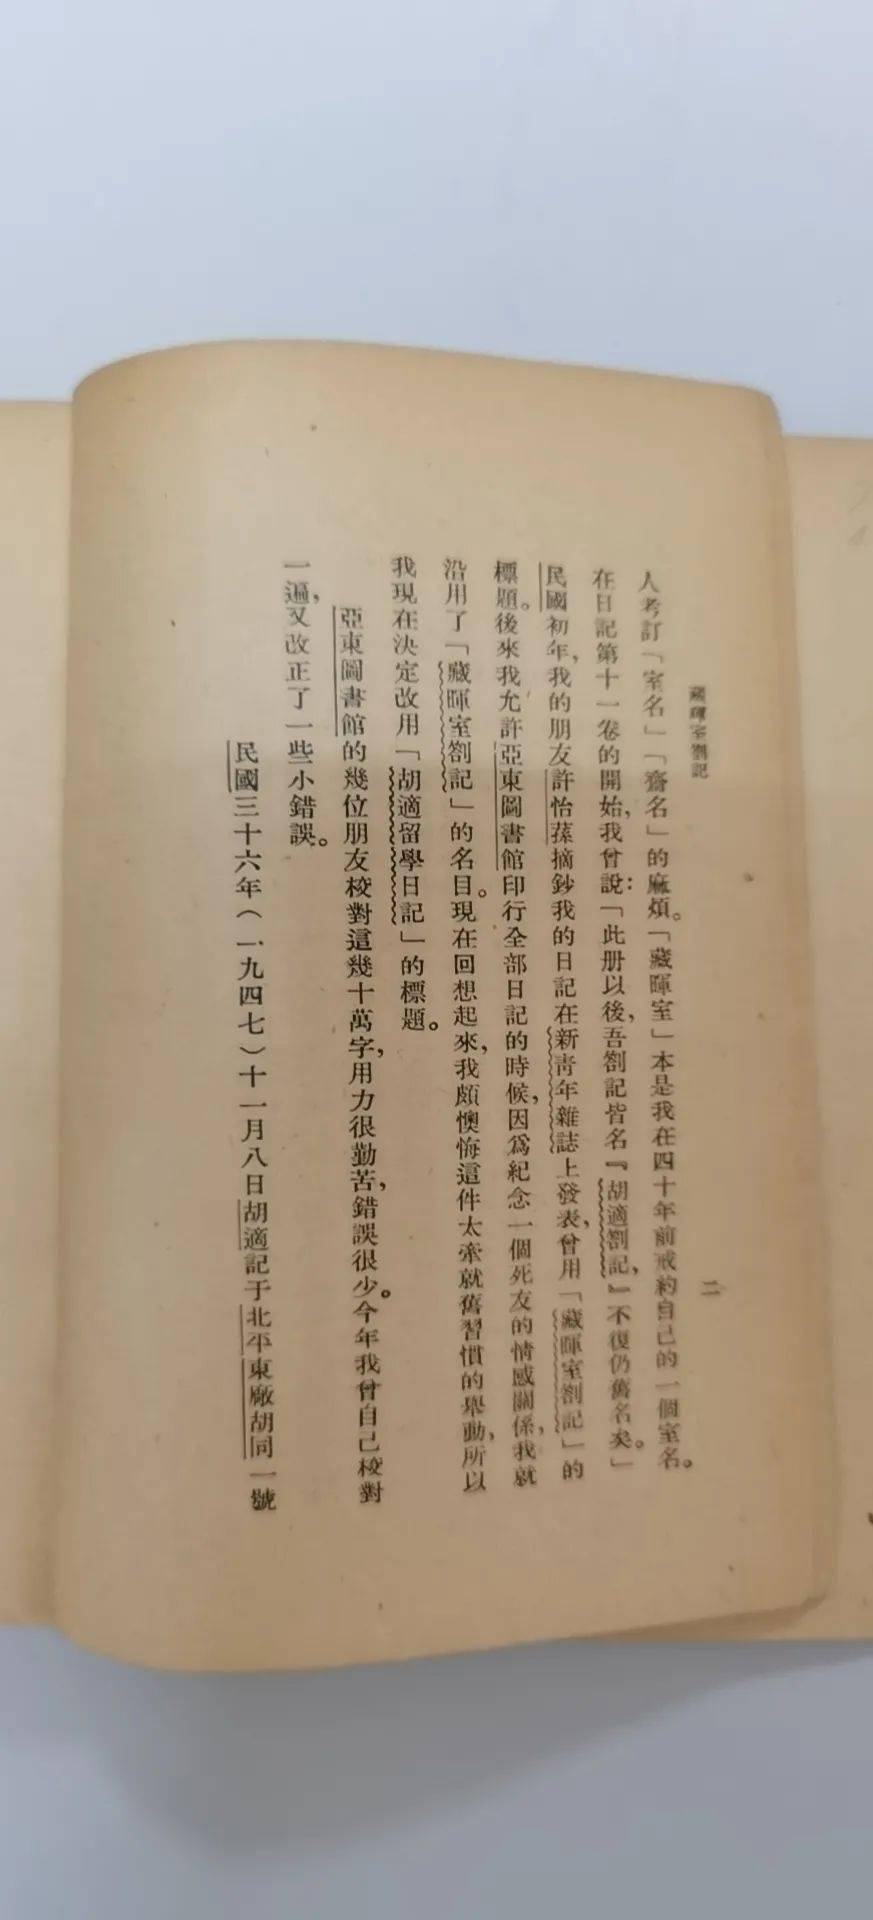 藏暉室劄記
二
人考訂「室名」「齋名」的麻煩。「藏暉室」本是我在四十年前戒約自己的一個室名。
在日記第十一卷的開始，我曾說：「此册以後，吾劄記皆名『胡適劄記，』不復仍舊名矣。」
民國初年，我的朋友許怡蓀摘鈔我的日記在新青年雜誌上發表，曾用「藏暉室劄記」的
標題。後來我允許亞東圖書館印行全部日記的時候，因爲紀念一個死友的情感關係，我就
沿用了「藏暉室劄記」的名目。現在回想起來，我頗懊悔這件太牽就舊習慣的舉動，所以
我現在決定改用「胡適留學日記」的標題。
亞東圖書館的幾位朋友校對這幾十萬字，用力很勤苦，錯誤很少。今年我曾自己校對
一遍，又改正了一些小錯誤。
民國三十六年（一九四七）十一月八日胡適記于北平東廠胡同一號